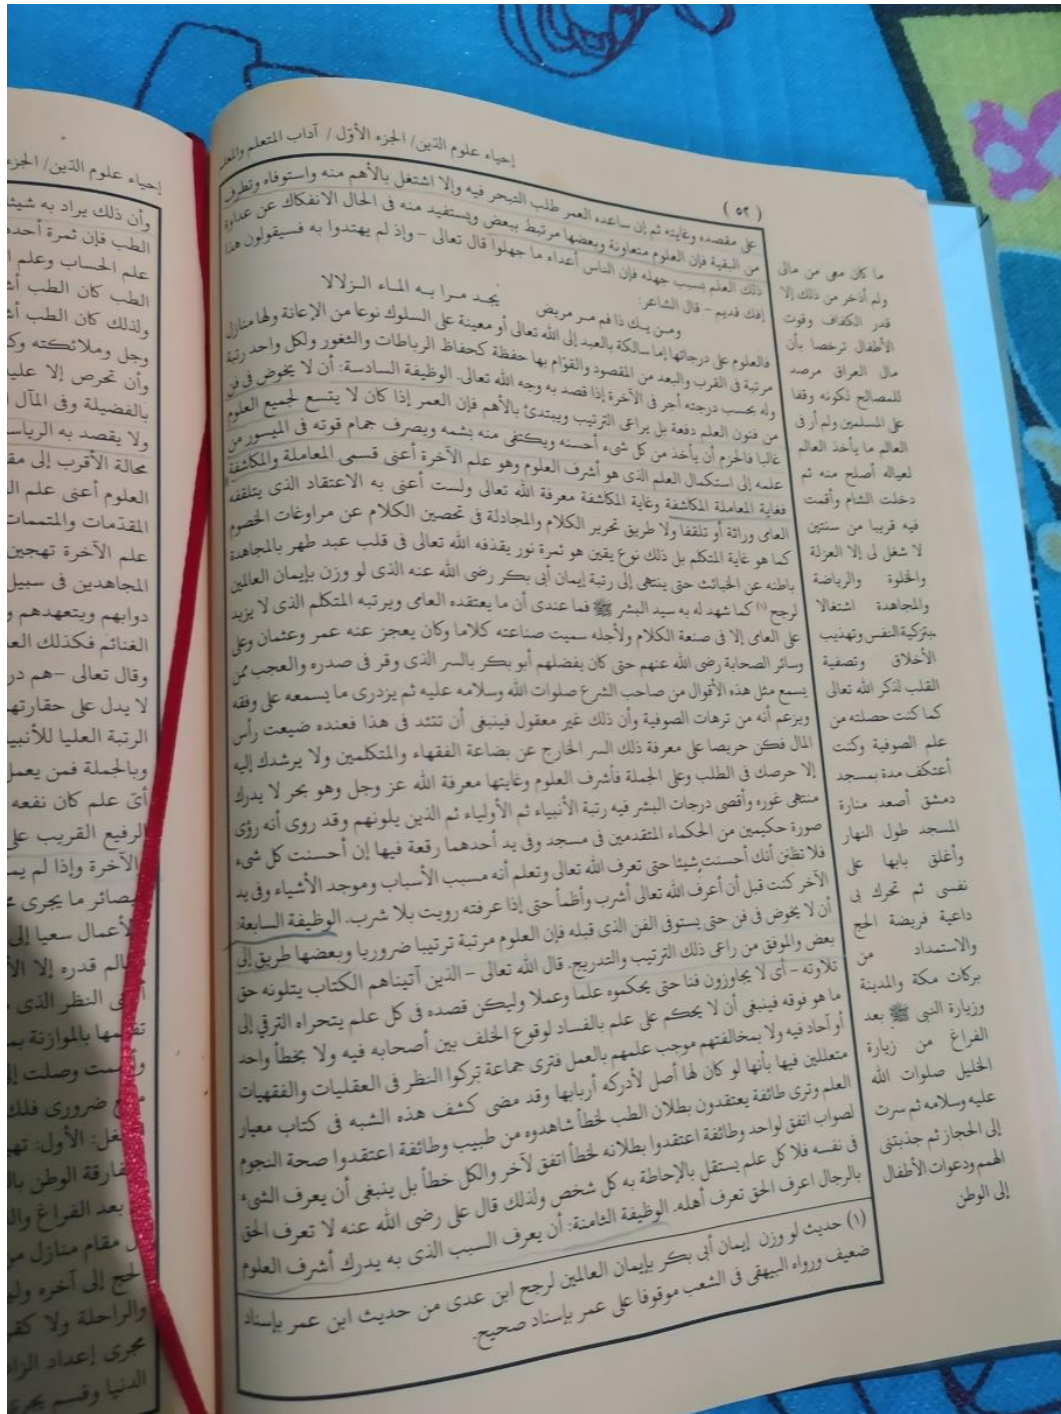 إحياء علوم الدين/ الجزء الأول / آداب المتعلم والمعلم
( ٥٢ )
على مقصده وغايته ثم إن ساعده العمر طلب التبحر فيه وإلا اشتغل بالأهم منه واستوفاه وتطرف
من البقية فإن العلوم متعاونة وبعضها مرتبط ببعض ويستفيد منه فى الحال الانفكاك عن عداوة
ذلك العلم بسبب جهله فإن الناس أعداء ما جهلوا قال تعالى – وإذ لم يهتدوا به فسيقولون هذا
إفك قديم – قال الشاعر:
ومن يك ذا فم مر مريض يجد مرا به الماء الزلالا
فالعلوم على درجاتها إما سالكة بالعبد إلى الله تعالى أو معينة على السلوك نوعا من الإعانة ولها منازل
مرتبة فى القرب والبعد من المقصود والقوّام بها حفظة كحفاظ الرباطات والثغور ولكل واحد رتبة
وله بحسب درجته أجر فى الآخرة إذا قصد به وجه الله تعالى. الوظيفة السادسة: أن لا يخوض فى فن
من فنون العلم دفعة بل يراعى الترتيب ويبتدئ بالأهم فإن العمر إذا كان لا يتسع لجميع العلوم
غالبا فالحزم أن يأخذ من كل شىء أحسنه ويكتفى منه بشمه ويصرف جمام قوته فى الميسور من
علمه إلى استكمال العلم الذى هو أشرف العلوم وهو علم الآخرة أعنى قسمى المعاملة والمكاشفة
فغاية المعاملة المكاشفة وغاية المكاشفة معرفة الله تعالى ولست أعنى به الاعتقاد الذى يتلقفه
العامى وراثة أو تلقفا ولا طريق تحرير الكلام والمجادلة فى تحصين الكلام عن مراوغات الخصوم
كما هو غاية المتكلم بل ذلك نوع يقين هو ثمرة نور يقذفه الله تعالى فى قلب عبد طهر بالمجاهدة
باطنه عن الخبائث حتى ينتهى إلى رتبة إيمان أبى بكر رضى الله عنه الذى لو وزن بإيمان العالمين
لرجح (١) كما شهد له به سيد البشر ﷺ فما عندى أن ما يعتقده العامى ويرتبه المتكلم الذى لا يزيد
على العامى إلا فى صنعة الكلام ولأجله سميت صناعته كلاما وكان يعجز عنه عمر وعثمان وعلى
وسائر الصحابة رضى الله عنهم حتى كان يفضلهم أبو بكر بالسر الذى وقر فى صدره والعجب ممن
يسمع مثل هذه الأقوال من صاحب الشرع صلوات الله وسلامه عليه ثم يزدرى ما يسمعه على وفقه
ويزعم أنه من ترهات الصوفية وأن ذلك غير معقول فينبغى أن تتئد فى هذا فعنده ضيعت رأس
المال فكن حريصا على معرفة ذلك السر الخارج عن بضاعة الفقهاء والمتكلمين ولا يرشدك إليه
إلا حرصك فى الطلب وعلى الجملة فأشرف العلوم وغايتها معرفة الله عز وجل وهو بحر لا يدرك
منتهى غوره وأقصى درجات البشر فيه رتبة الأنبياء ثم الأولياء ثم الذين يلونهم وقد روى أنه رؤى
صورة حكيمين من الحكماء المتقدمين فى مسجد وفى يد أحدهما رقعة فيها إن أحسنت كل شىء
فلا تظنن أنك أحسنت شيئا حتى تعرف الله تعالى وتعلم أنه مسبب الأسباب وموجد الأشياء وفى يد
الآخر كنت قبل أن أعرف الله تعالى أشرب وأظمأ حتى إذا عرفته رويت بلا شرب. الوظيفة السابعة:
أن لا يخوض فى فن حتى يستوفى الفن الذى قبله فإن العلوم مرتبة ترتيبا ضروريا وبعضها طريق إلى
بعض والموفق من راعى ذلك الترتيب والتدريج. قال الله تعالى – الذين آتيناهم الكتاب يتلونه حق
تلاوته – أى لا يجاوزون فنا حتى يحكموه علما وعملا وليكن قصده فى كل علم يتحراه الترقي إلى
ما هو فوقه فينبغى أن لا يحكم على علم بالفساد لوقوع الخلف بين أصحابه فيه ولا بخطأ واحد
أو آحاد فيه ولا بمخالفتهم موجب علمهم بالعمل فترى جماعة تركوا النظر فى العقليات والفقهيات
متعللين فيها بأنها لو كان لها أصل لأدركه أربابها وقد مضى كشف هذه الشبه فى كتاب معيار
العلم وترى طائفة يعتقدون بطلان الطب لخطأ شاهدوه من طبيب وطائفة اعتقدوا صحة النجوم
لصواب اتفق لواحد وطائفة اعتقدوا بطلانه لخطأ اتفق لآخر والكل خطأ بل ينبغى أن يعرف الشىء
فى نفسه فلا كل علم يستقل بالإحاطة به كل شخص ولذلك قال على رضى الله عنه لا تعرف الحق
بالرجال اعرف الحق تعرف أهله. الوظيفة الثامنة: أن يعرف السبب الذى به يدرك أشرف العلوم
(١) حديث لو وزن إيمان أبى بكر بإيمان العالمين لرجح ابن عدى من حديث ابن عمر بإسناد
ضعيف ورواه البيهقى فى الشعب موقوفا على عمر بإسناد صحيح.
ما كان معى من مالى
ولم أدخر من ذلك إلا
قدر الكفاف وقوت
الأطفال ترخصا بأن
مال العراق مرصد
للمصالح لكونه وقفا
على المسلمين ولم أر فى
العالم ما يأخذ العالم
لعياله أصلح منه ثم
دخلت الشام وأقمت
فيه قريبا من سنتين
لا شغل لى إلا العزلة
والخلوة والرياضة
والمجاهدة اشتغالا
بتزكية النفس وتهذيب
الأخلاق وتصفية
القلب لذكر الله تعالى
كما كنت حصلته من
علم الصوفية وكنت
أعتكف مدة بمسجد
دمشق أصعد منارة
المسجد طول النهار
وأغلق بابها على
نفسى ثم تحرك بى
داعية فريضة الحج
والاستمداد من
بركات مكة والمدينة
وزيارة النبى ﷺ بعد
الفراغ من زيارة
الخليل صلوات الله
عليه وسلامه ثم سرت
إلى الحجاز ثم جذبتنى
الهمم ودعوات الأطفال
إلى الوطن
إحياء علوم الدين/ الجزء
وأن ذلك يراد به
الطب فإن ثمرة
علم الحساب وعلم
الطب كان الطب
ولذلك كان الطب
وجل وملائكته
وأن تحرص إلا
بالفضيلة وفى المآل
ولا يقصد به
محالة الأقرب إلى
العلوم أعنى علم
المقدّمات والمتممات
علم الآخرة تهجين
المجاهدين فى سبيل
دوابهم ويتعهدهم
الغنائم فكذلك
وقال تعالى – هم
لا يدل على حقارتهم
الرتبة العليا
وبالجملة فمن يعمل
أىّ علم كان نفعه
الرفيع القريب
الآخرة وإذا لم
ما يجرى
سعيا إلى
قدره إلا
النظر الذى
بالموازنة
وصلت
ضرورى
الأول:
الوطن
بعد الفراغ
مقام منازل
الحج إلى آخره
والراحلة ولا
مجرى إعداد
الدنيا وقسم يجرى